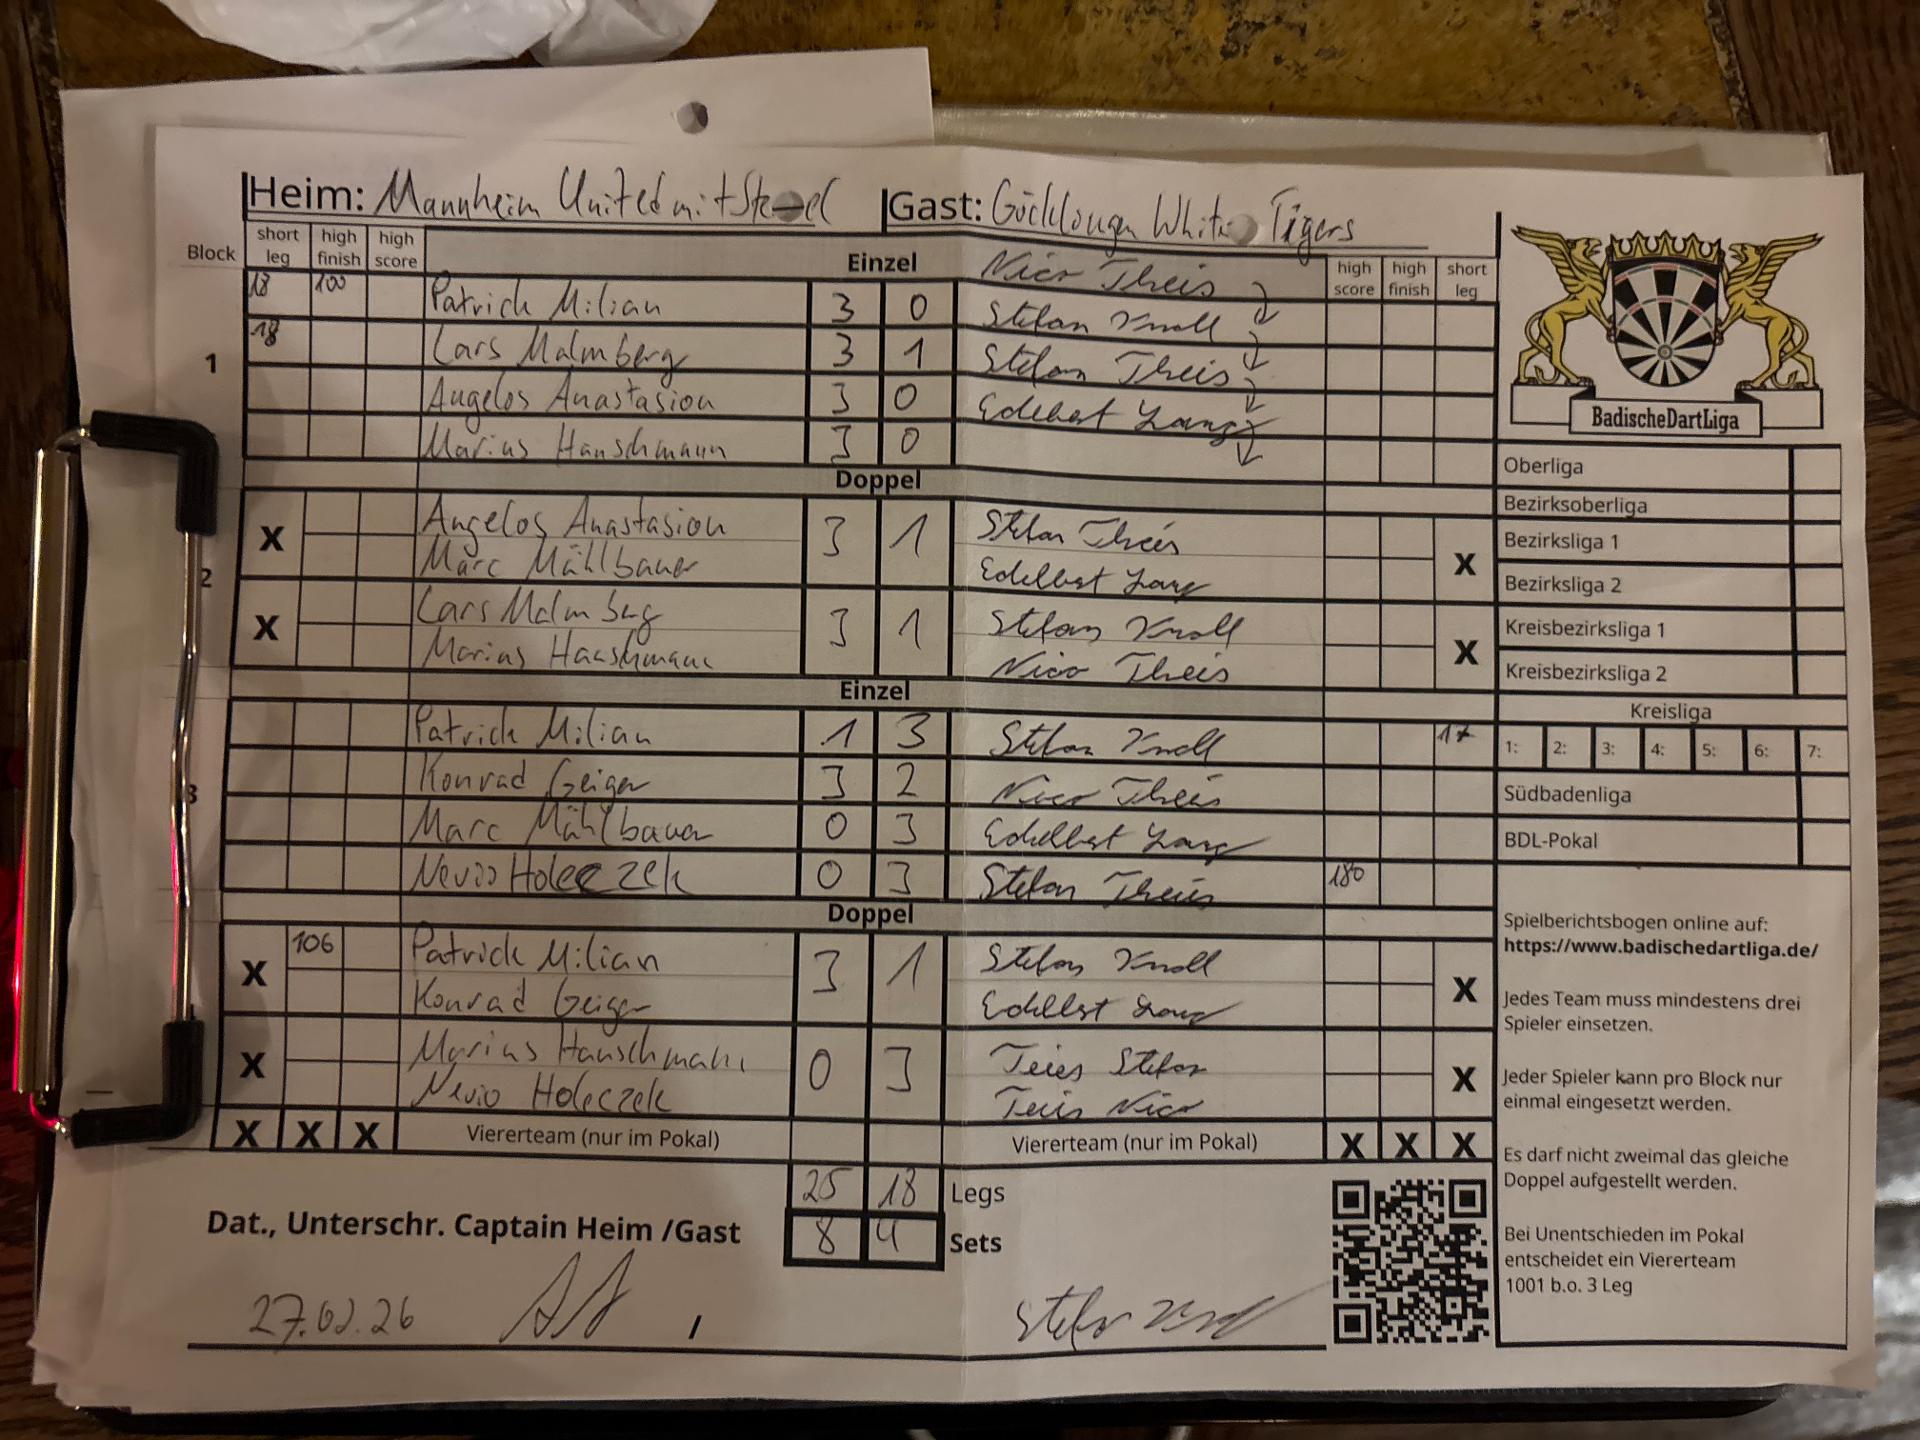 Heim: Mannheim United mit Steel Gast: Göcklingen White Tigers
Block short leg high finish high score Einzel high score high finish short leg
Nico Theis
18 100 Patrick Milian 3 0
Stefan Knoll
18 Lars Malmberg 3 1
Stefan Theis
1
Angelos Anastasiou 3 0
Edelbert Lang
Marius Hanschmann 3 0
Doppel
X Angelos Anastasiou 3 1 Stefan Theis X
Marc Mühlbauer Edelbert Lang
2
X Lars Malmberg 3 1 Stefan Knoll X
Marius Hanschmann Nico Theis
Einzel
Patrick Milian 1 3 Stefan Knoll 17
Konrad Geiger 3 2 Nico Theis
3
Marc Mühlbauer 0 3 Edelbert Lang
Nevio Holeczek 0 3 Stefan Theis 180
Doppel
X 106 Patrick Milian 3 1 Stefan Knoll X
Konrad Geiger Edelbert Lang
X Marius Hanschmann 0 3 Teies Stefan X
Nevio Holeczek Teis Nico
X X X Viererteam (nur im Pokal) Viererteam (nur im Pokal) X X X
25 18 Legs
Dat., Unterschr. Captain Heim /Gast 8 4 Sets
27.02.26 / Stefan Knoll
BadischeDartLiga
Oberliga
Bezirksoberliga
Bezirksliga 1
Bezirksliga 2
Kreisbezirksliga 1
Kreisbezirksliga 2
Kreisliga
1: 2: 3: 4: 5: 6: 7:
Südbadenliga
BDL-Pokal
Spielberichtsbogen online auf:
https://www.badischedartliga.de/
Jedes Team muss mindestens drei
Spieler einsetzen.
Jeder Spieler kann pro Block nur
einmal eingesetzt werden.
Es darf nicht zweimal das gleiche
Doppel aufgestellt werden.
Bei Unentschieden im Pokal
entscheidet ein Viererteam
1001 b.o. 3 Leg